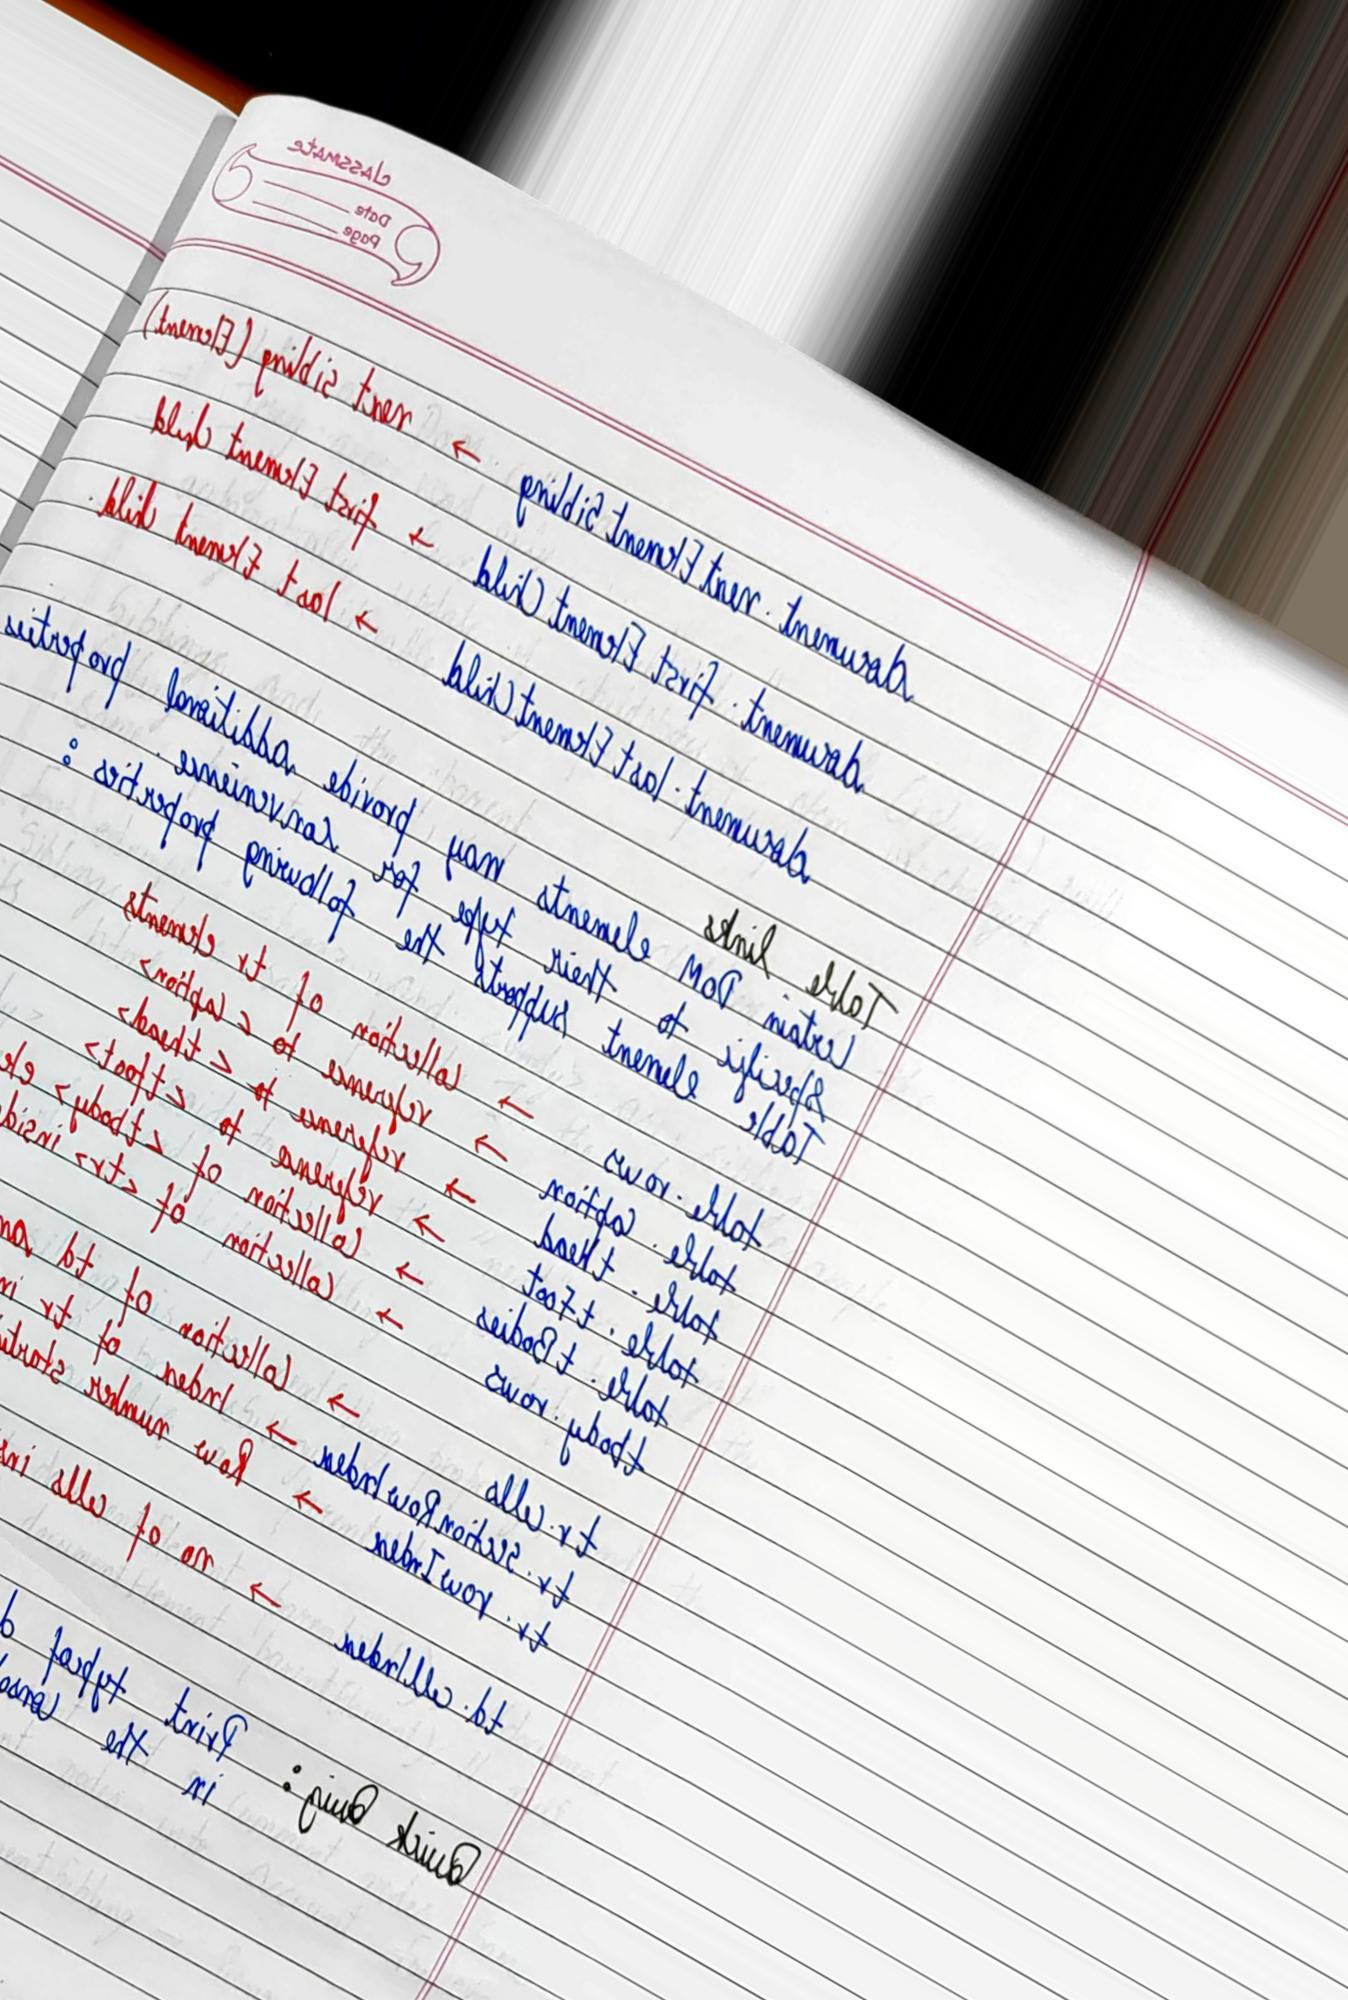 classmate
Date
Page
document.nextElementSibling → next sibling (Element)
document.firstElementChild → first Element Child
document.lastElementChild → last Element child.
Table links
Certain DOM elements may provide additional properties
Specific to their type for convenience.
Table element supports the following properties :
table.rows → Collection of tr elements
table.caption → reference to <caption>
table.tHead → reference to <thead>
table.tFoot → reference to <tfoot>
table.tBodies → Collection of <tbody>
tbody.rows → Collection of <tr> inside
tr.cells → Collection of td
tr.sectionRowIndex → Index of tr
tr.rowIndex → Row number
td.cellIndex → no of cells
Quick Quiz : Print typeof
in the